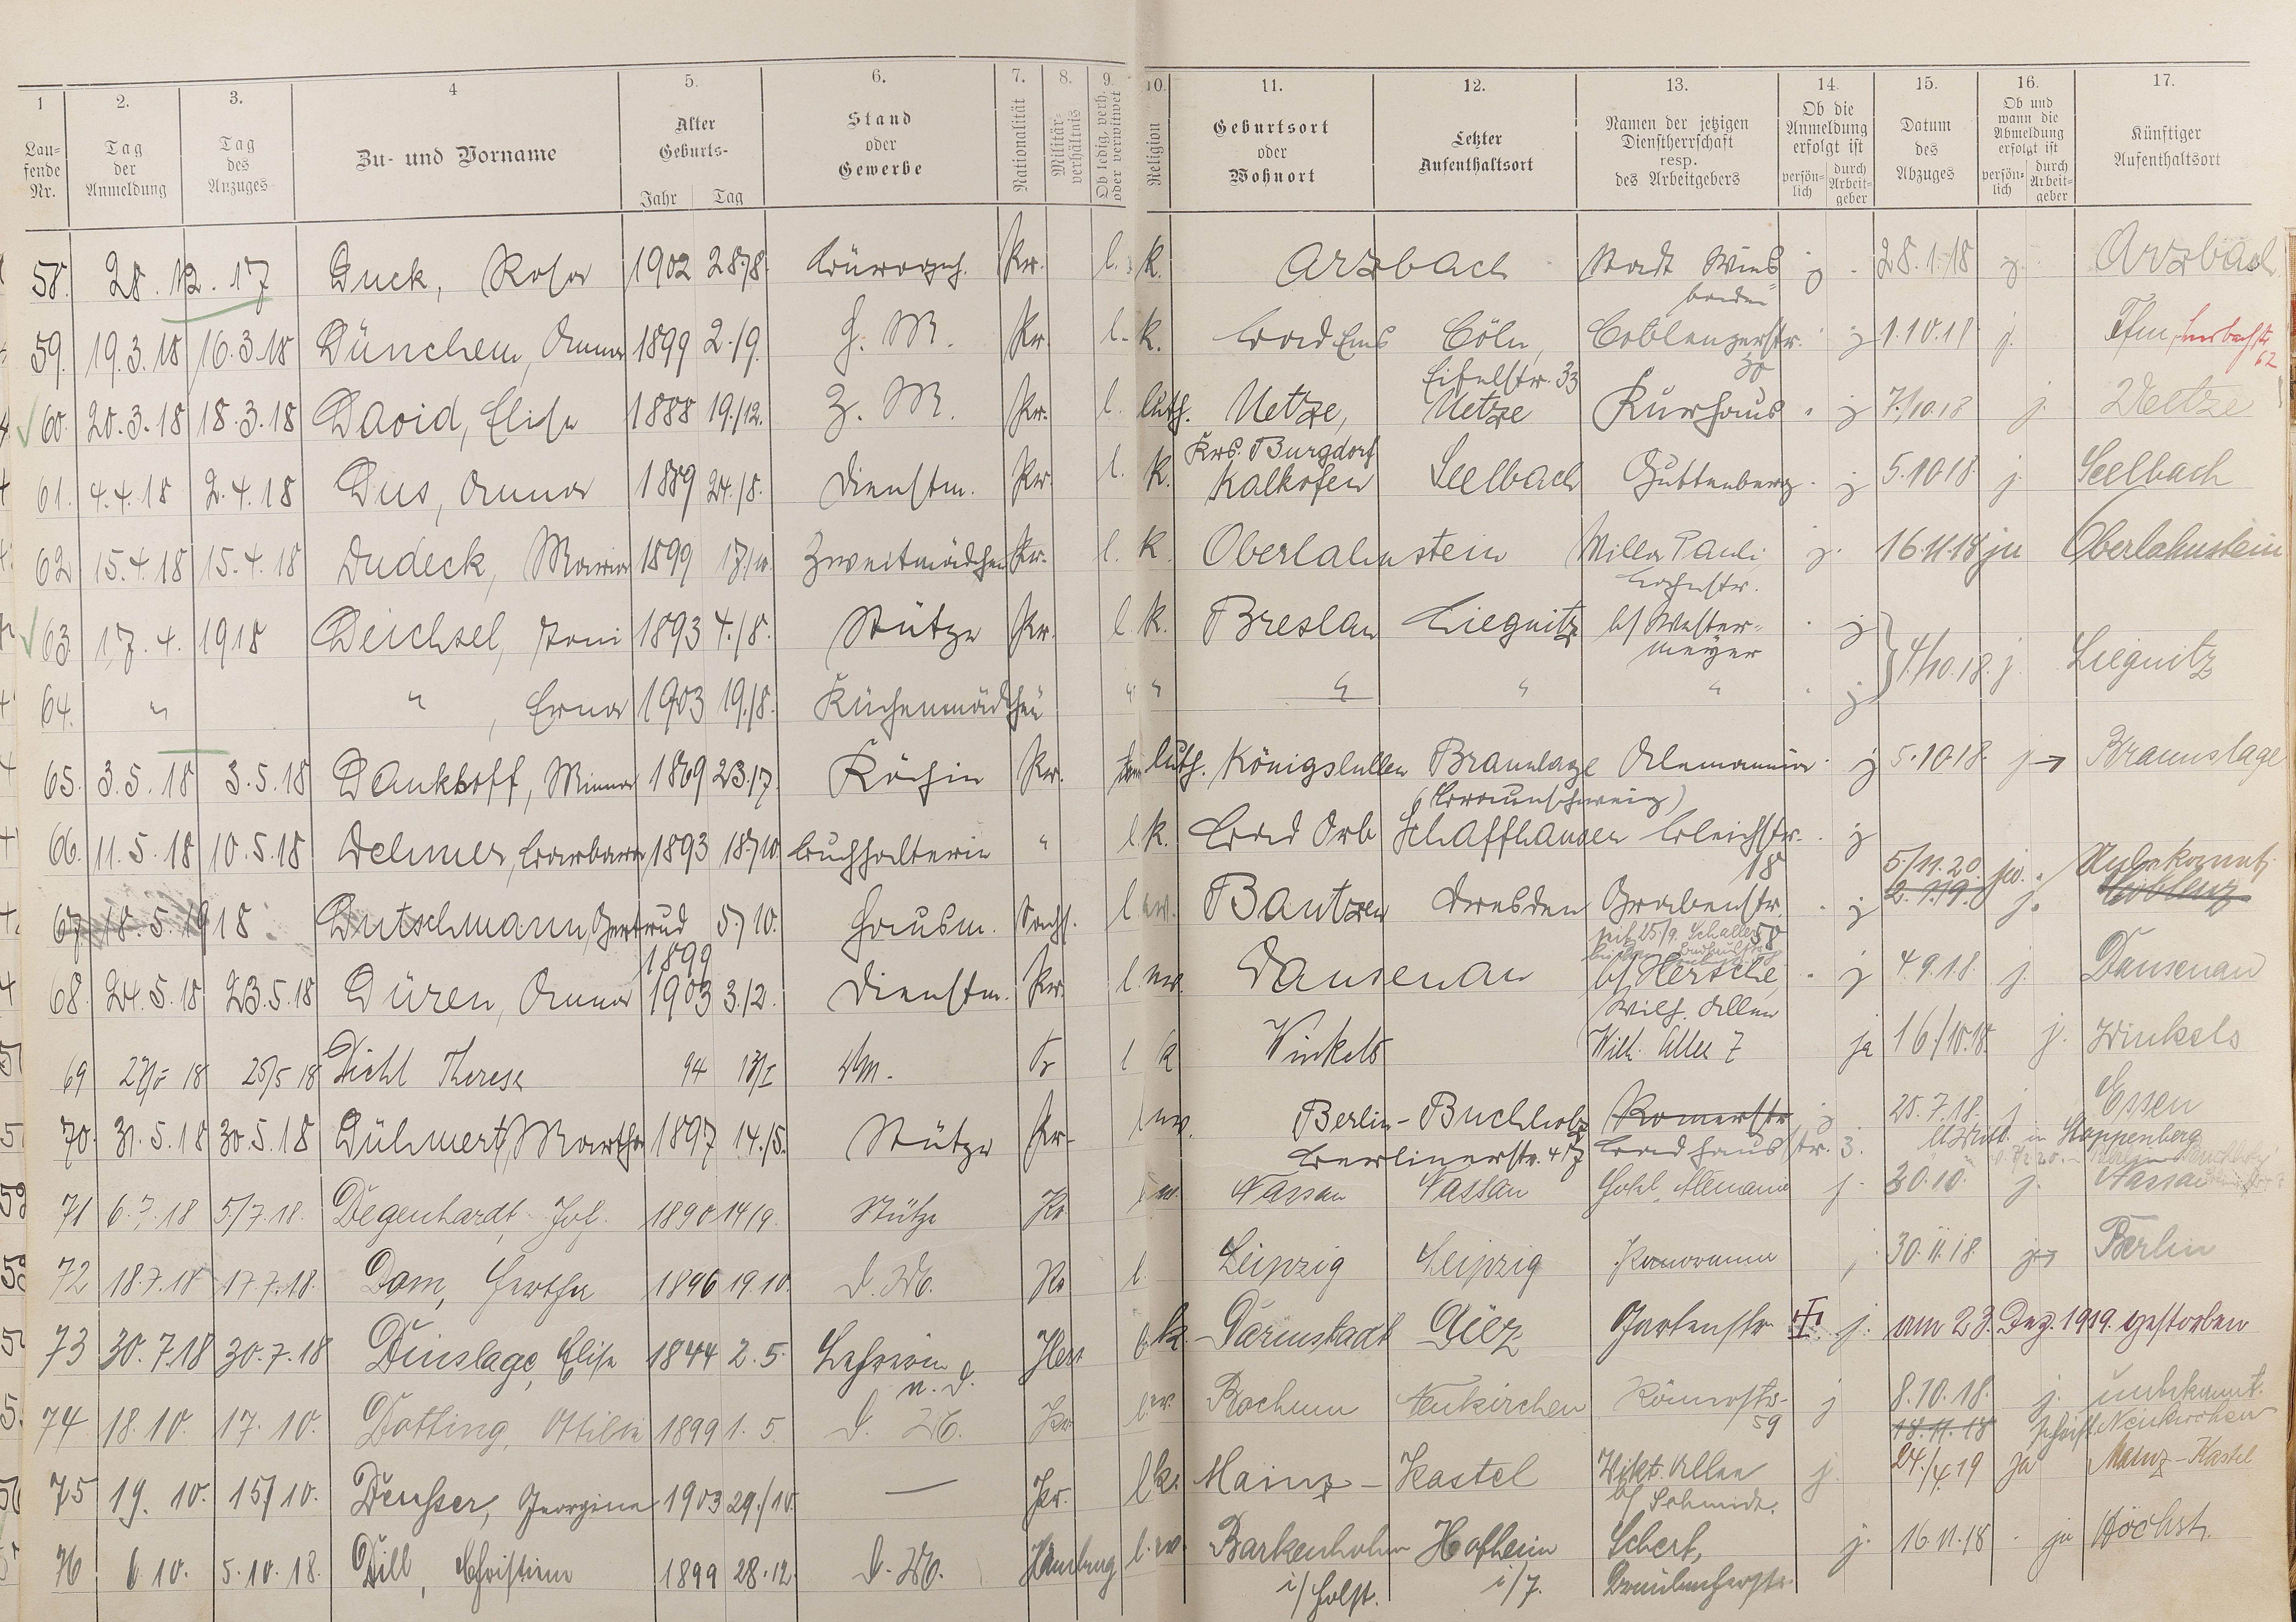 1 2. 3. 4 5. 6. 7. 8. 9. 10. 11. 12. 13. 14. 15. 16. 17.
Laufende Nr. Tag der Anmeldung Tag des Anzuges Zu- und Vorname Alter Geburts- Jahr Tag Stand oder Gewerbe Nationalität Militär-verhältnis Ob ledig, verh. oder verwitwet Religion Geburtsort oder Wohnort Letzter Aufenthaltsort Namen der jetzigen Dienstherrschaft resp. des Arbeitgebers Ob die Anmeldung erfolgt ist persön-lich durch Arbeit-geber Datum des Abzuges Ob und wann die Abmeldung erfolgt ist persön-lich durch Arbeit-geber Künftiger Aufenthaltsort
58. 28. 12. 17 Duck, Rosa 1902 28/8. Pr. l. k. Arzbach Stadt Wies-baden j 28.1.18 j. Arzbach
59. 19.3.18 16.3.18 Dünchem, Anna 1899 2./9. H. M. Pr. l. k. Bad Ems Cöln, Eifelstr. 33 Coblenzerstr. 30 j 1.10.18 j. Ffm, 62
60. 20.3.18 18.3.18 David, Elise 1888 19./12. Z. M. Pr. l. luth. Uetze, Krs. Burgdorf Uetze Kurhaus j 7./10.18 j. Uetze
61. 4.4.18 2.4.18 Dus, Anna 1889 24./8. Dienstm. Pr. l. k. Kalkofen Seelbach Guttenberg j 5.10.18 j. Seelbach
62 15.4.18 15.4.18 Dudeck, Maria 1899 17./10. Zweitmädchen Pr. l. k. Oberlahnstein Villa Pauli Bahnstr. j. 16.11.18 ja Oberlahnstein
63. 17. 4. 1918 Deichsel, Toni 1893 4./8. Stütze Pr. l. k. Breslau Liegnitz b/ Wester-meyer j 4/10.18. j. Liegnitz
64. " " , Erna 1903 19./8. Küchenmädchen " " " " " j
65. 3.5.18 3.5.18 Dankhoff, Minna 1869 23./7. Köchin Pr. luth. Königslutter Braunlage (Braunschweig) Alemannia j 5.10.18. j → Braunlage
66. 11.5.18 10.5.18 Dehmer, Barbara 1893 18./10. Buchhalterin " l. k. Bad Orb Schaffhausen Bleichstr. 18 j 5/11.20. ja. Unbekannt
67 18.5.1918 Dutschmann, Gertrud 1899 5./10. Hausm. Sachs. l ev. Bautzen Dresden Grabenstr. 58 j 2.1.19. j. Coblenz
68. 24.5.18 23.5.18 Düren, Anna 1903 3./2. Dienstm. Pr. l. ev. Dausenau b/ Hersche, Wilh. Allee j 4.9.18. j. Dausenau
69 27/5 18 25/5 18 Diehl Therese 94 13/I Pr l k Winkels Wilh. Allee 7 ja 16./10.18. j. Winkels
70. 31.5.18 30.5.18 Dühmert, Martha 1897 14./5. Stütze Pr. l ev. Berlin-Buchholz Berlinerstr. 47 Römerstr. Badhausstr. 3. j 25.7.18. j Essen
in Stoppenberg
71 6.7.18 5/7.18. Degenhardt, Joh. 1890 14/9. Stütze Pr l ev. Nassau Nassau Hotel Alemania j. 30.10. j. Nassau
72 18.7.18 17.7.18. Dam, Hertha 1896 19.10. D. M. Pr l. Leipzig Leipzig Panorama j 30.11.18 j → Berlin
73 30.7.18 30.7.18 Dinslage, Elise 1844 2.5. Lehrerin a. D. Hess l. k. Darmstadt Diez Gartenstr. j. am 23. Dez. 1919. gestorben
74 18.10. 17.10. Dotting, Ottilie 1899 1.5. D. M. Pr l. ev. Bochum Neukirchen Römerstr. 59 j 8.10.18. j. unbekannt.
18.11.18 Neukirchen
75 19. 10. 15/10. Deusser, Georgine 1903 29./10. — Pr. l k. Mainz - Kastel Vikt. Allee b/ Schmidt. j. 24./4.19 ja Mainz-Kastel
76 6 10. 5.10.18. Dill, Christine 1899 28.12. D. M. Hamburg l. ev. Barkenholm i/ Holst. Hofheim i/T. Scherf, j. 16.11.18 ja Höchst.